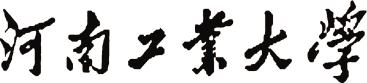 河南工業大學